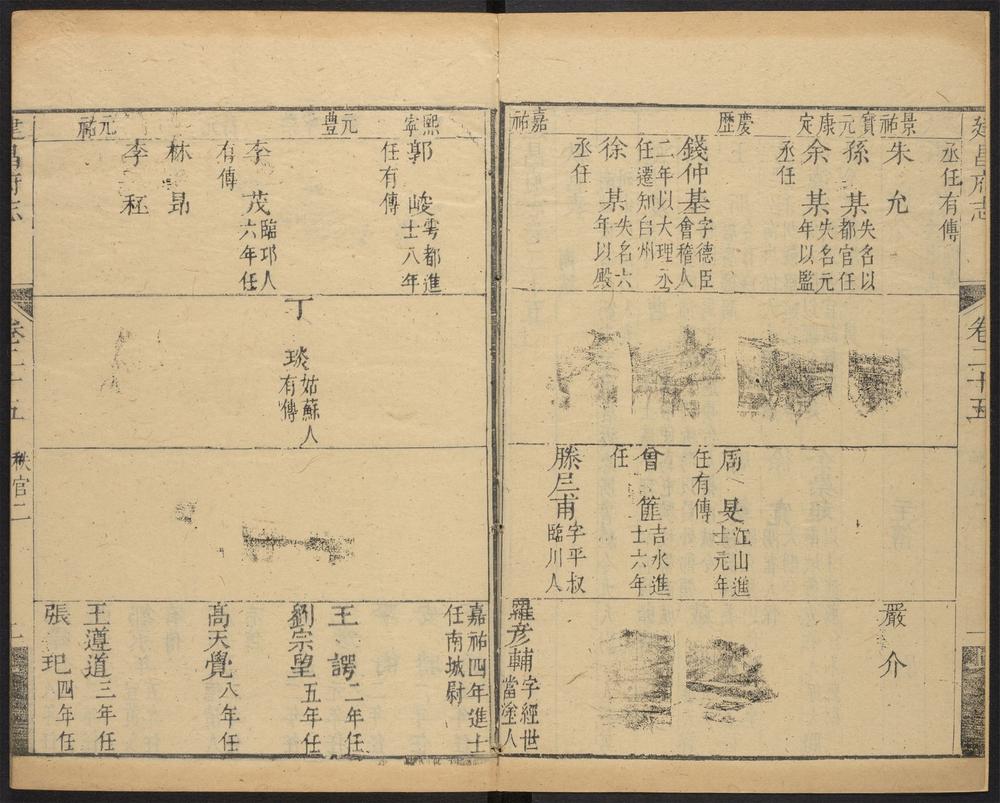 建昌府志
卷二十五
丞任有傳
景祐
朱 允
寶元
孫 某失名以
都官任
康定
余 某失名元
年以監
丞任
慶歷
錢仲基字德臣
會稽人
二年以大理丞
任遷知台州
嘉祐
徐 某失名六
年以殿
丞任
周 旻江山進
士元年
任有傳
吉水進
士六年
任
字平叔
臨川人
嚴 介
羅彥輔字經世
當塗人
熙寧
郭 峻雩都進
士八年
任有傳
元豐
李 茂臨邛人
六年任
有傳
元祐
林 昻
李 秠
丁 琰姑蘇人
有傳
嘉祐四年進士
任南城尉
王 諤二年任
劉宗望五年任
高天覺八年任
王遵道三年任
張 玘四年任
建昌府志
卷二十五
秩官二